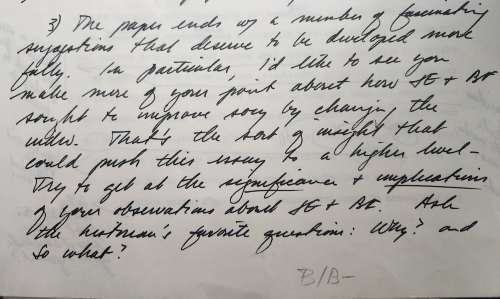 3) The paper ends w/ a number of fascinating
suggestions that deserve to be developed more
fully. In particular, I'd like to see you
make more of your point about how JE + BF
sought to improve socy by changing the
indiv. That's the sort of insight that
could push this essay to a higher level –
Try to get at the significance + implications
of your observations about JE + BF. Ask
the historian's favorite questions: Why? and
So what?
B/B-